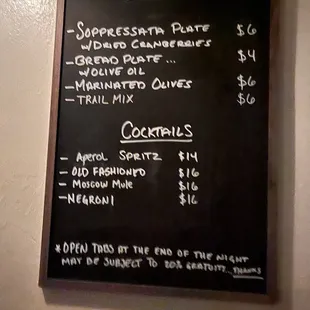 - SOPPRESSATA PLATE $6
W/DRIED CRANBERRIES
- BREAD PLATE ... $4
W/OLIVE OIL
- MARINATED OLIVES $6
- TRAIL MIX $6
COCKTAILS
- Aperol SPRITZ $14
- OLD FASHIONED $16
- Moscow Mule $16
- NEGRONI $16
*OPEN TABS AT THE END OF THE NIGHT
MAY BE SUBJECT TO 20% GRATUITY... THANKS